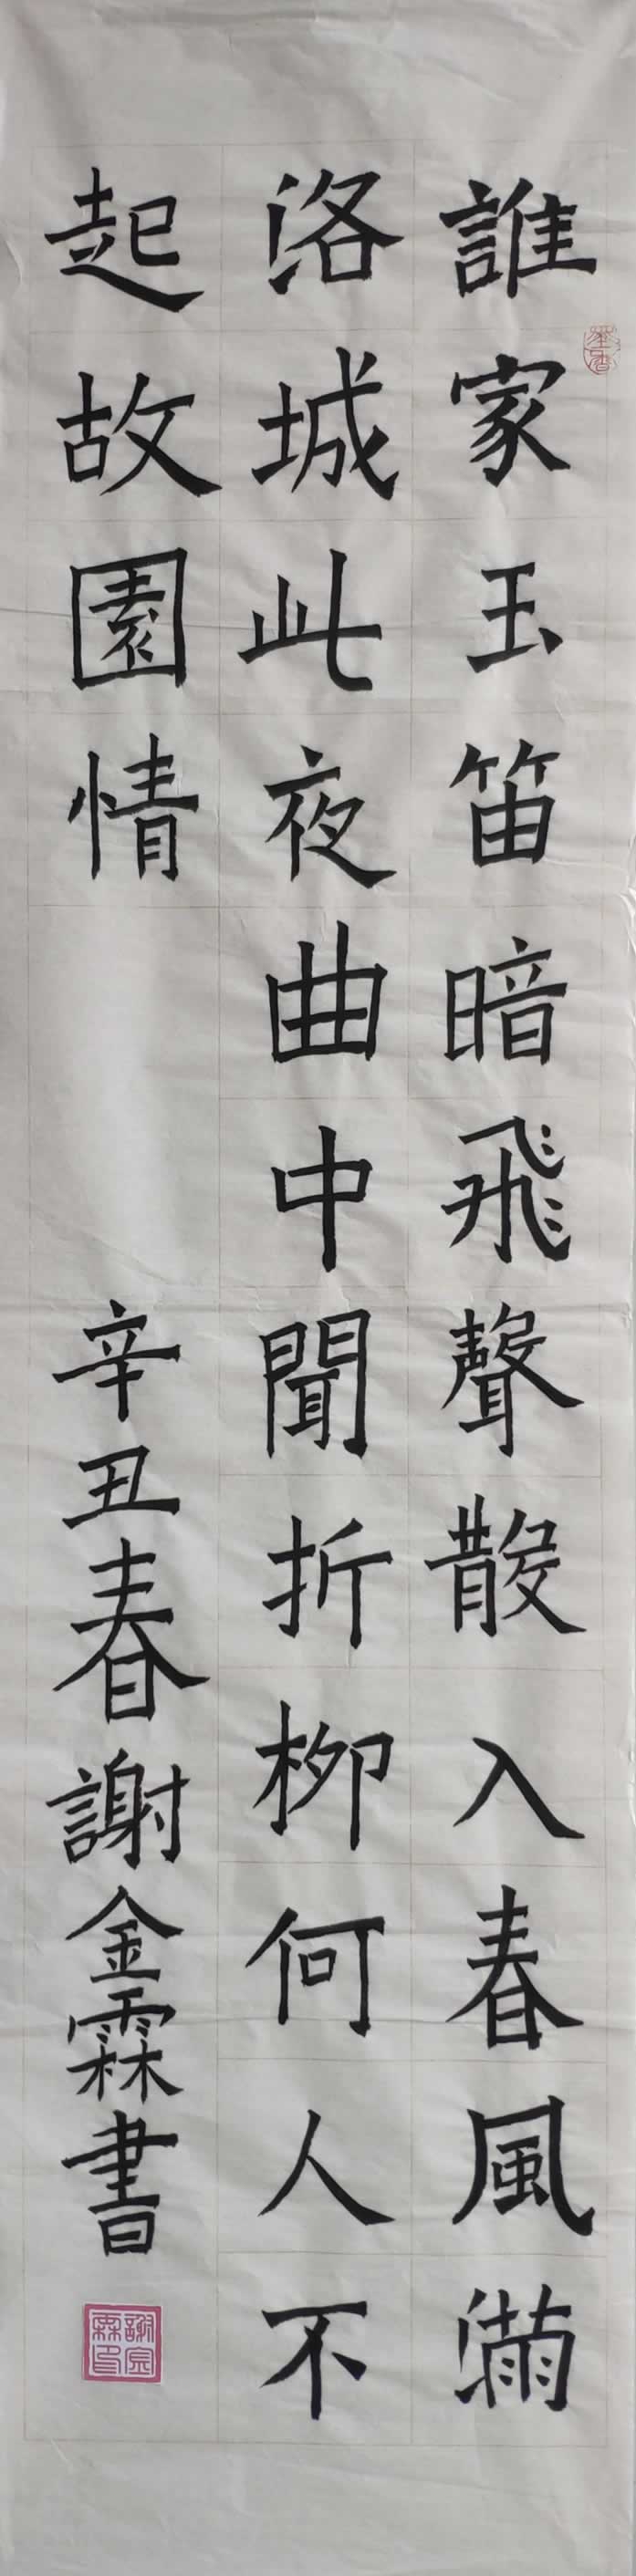 誰家玉笛暗飛聲散入春風滿
洛城此夜曲中聞折栁何人不
起故園情
辛丑春謝金霖書